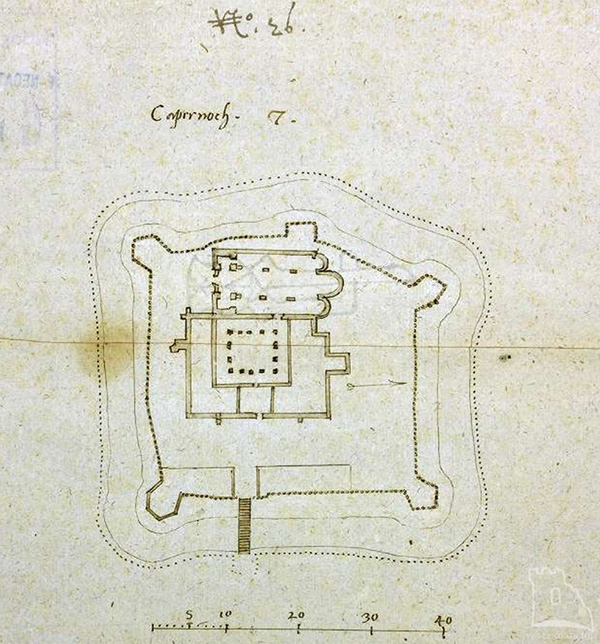 No. 26.
Capernoch. 7.
5 10 20 30 40